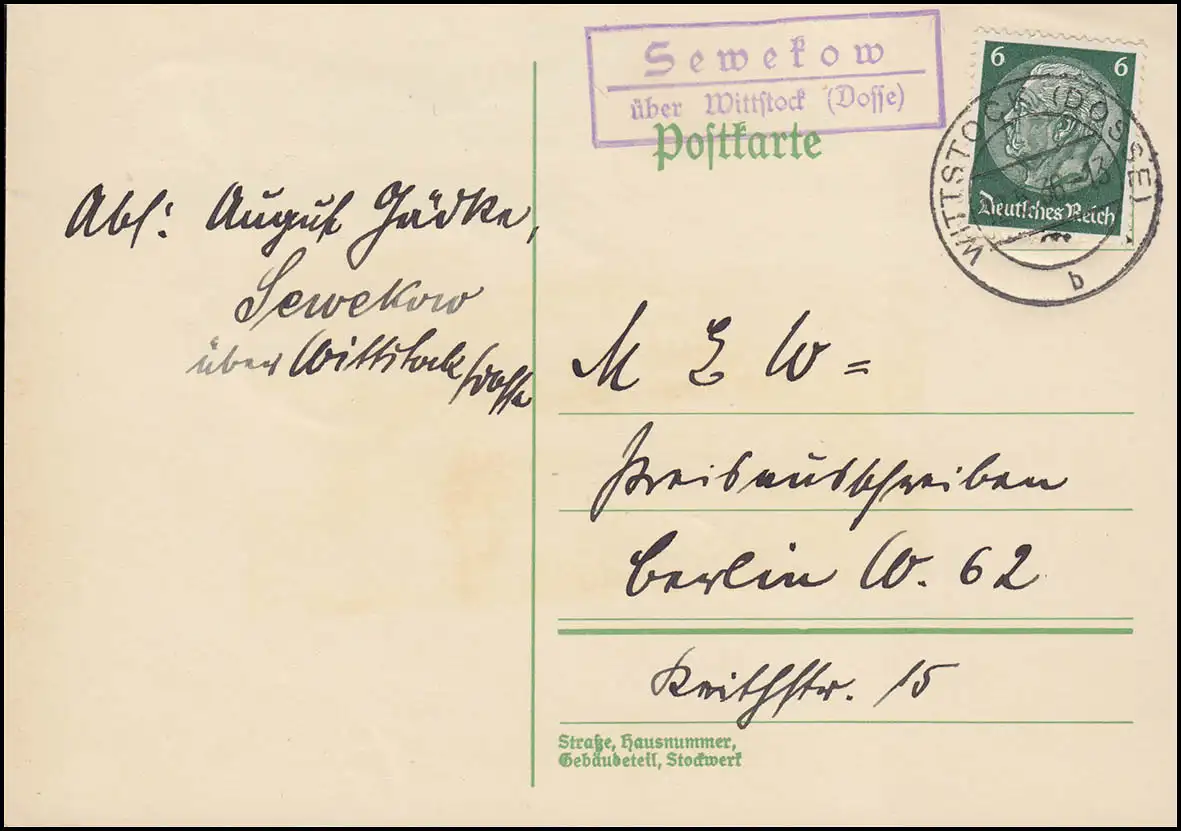 Sewekow
über Wittstock (Dosse)
Postkarte
6 6
Deutsches Reich
WITTSTOCK (DOSSE)
b
Abs: August Gädke,
Sewekow
über Wittstock/Dosse
M E W =
Preisausschreiben
Berlin W. 62
Keithstr. 15
Straße, Hausnummer,
Gebäudeteil, Stockwerk